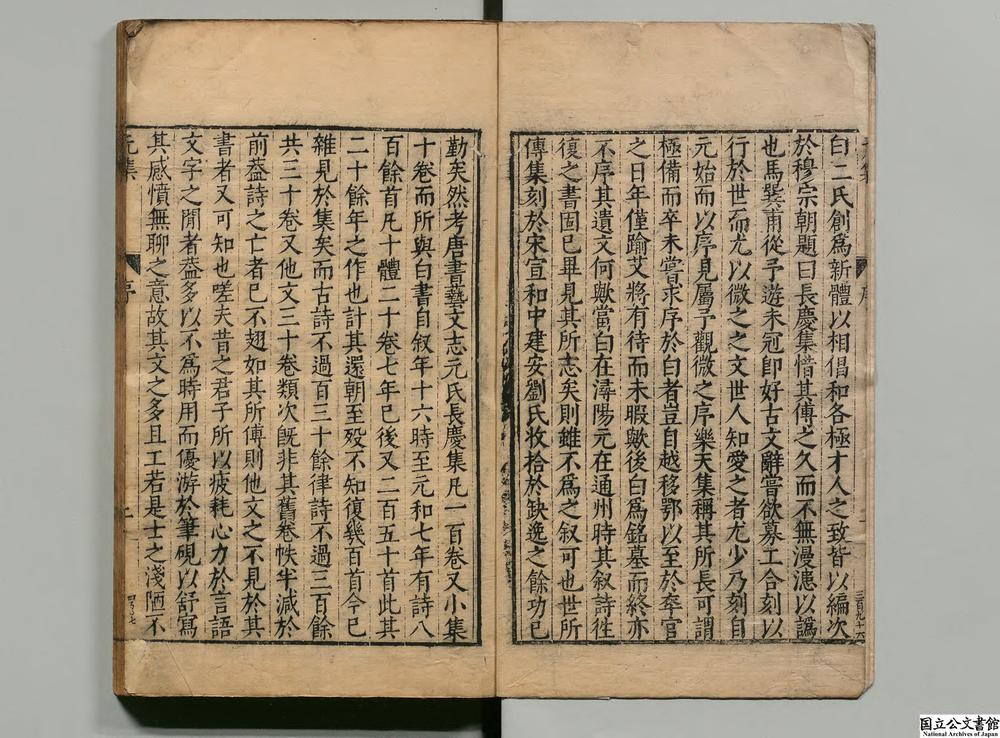 白二氏創爲新體以相倡和各極才人之致皆以編次
於穆宗朝題曰長慶集惜其傳之久而不無漫漶以譌
也馬巽甫從予遊未冠卽好古文辭嘗欲募工合刻以
行於世而尤以微之之文世人知愛之者尤少乃刻自
元始而以序見屬予觀微之序樂天集稱其所長可謂
極備而卒未嘗求序於白者豈自越移鄂以至於卒官
之日年僅踰艾將有待而未暇歟後白爲銘墓而終亦
不序其遺文何歟當白在潯陽元在通州時其叙詩徃
復之書固已畢見其所志矣則雖不爲之叙可也世所
傳集刻於宋宣和中建安劉氏收拾於缺逸之餘功已
勤矣然考唐書藝文志元氏長慶集凡一百卷又小集
十卷而所與白書自叙年十六時至元和七年有詩八
百餘首凡十體二十卷七年已後又二百五十首此其
二十餘年之作也計其還朝至殁不知復幾百首今已
雜見於集矣而古詩不過百三十餘律詩不過三百餘
共三十卷又他文三十卷類次旣非其舊卷帙半減於
前葢詩之亡者已不翅如其所傳則他文之不見於其
書者又可知也嗟夫昔之君子所以疲耗心力於言語
文字之閒者葢多以不爲時用而優游於筆硯以舒寫
其感憤無聊之意故其文之多且工若是士之淺陋不
元集
序
国立公文書館
National Archives of Japan